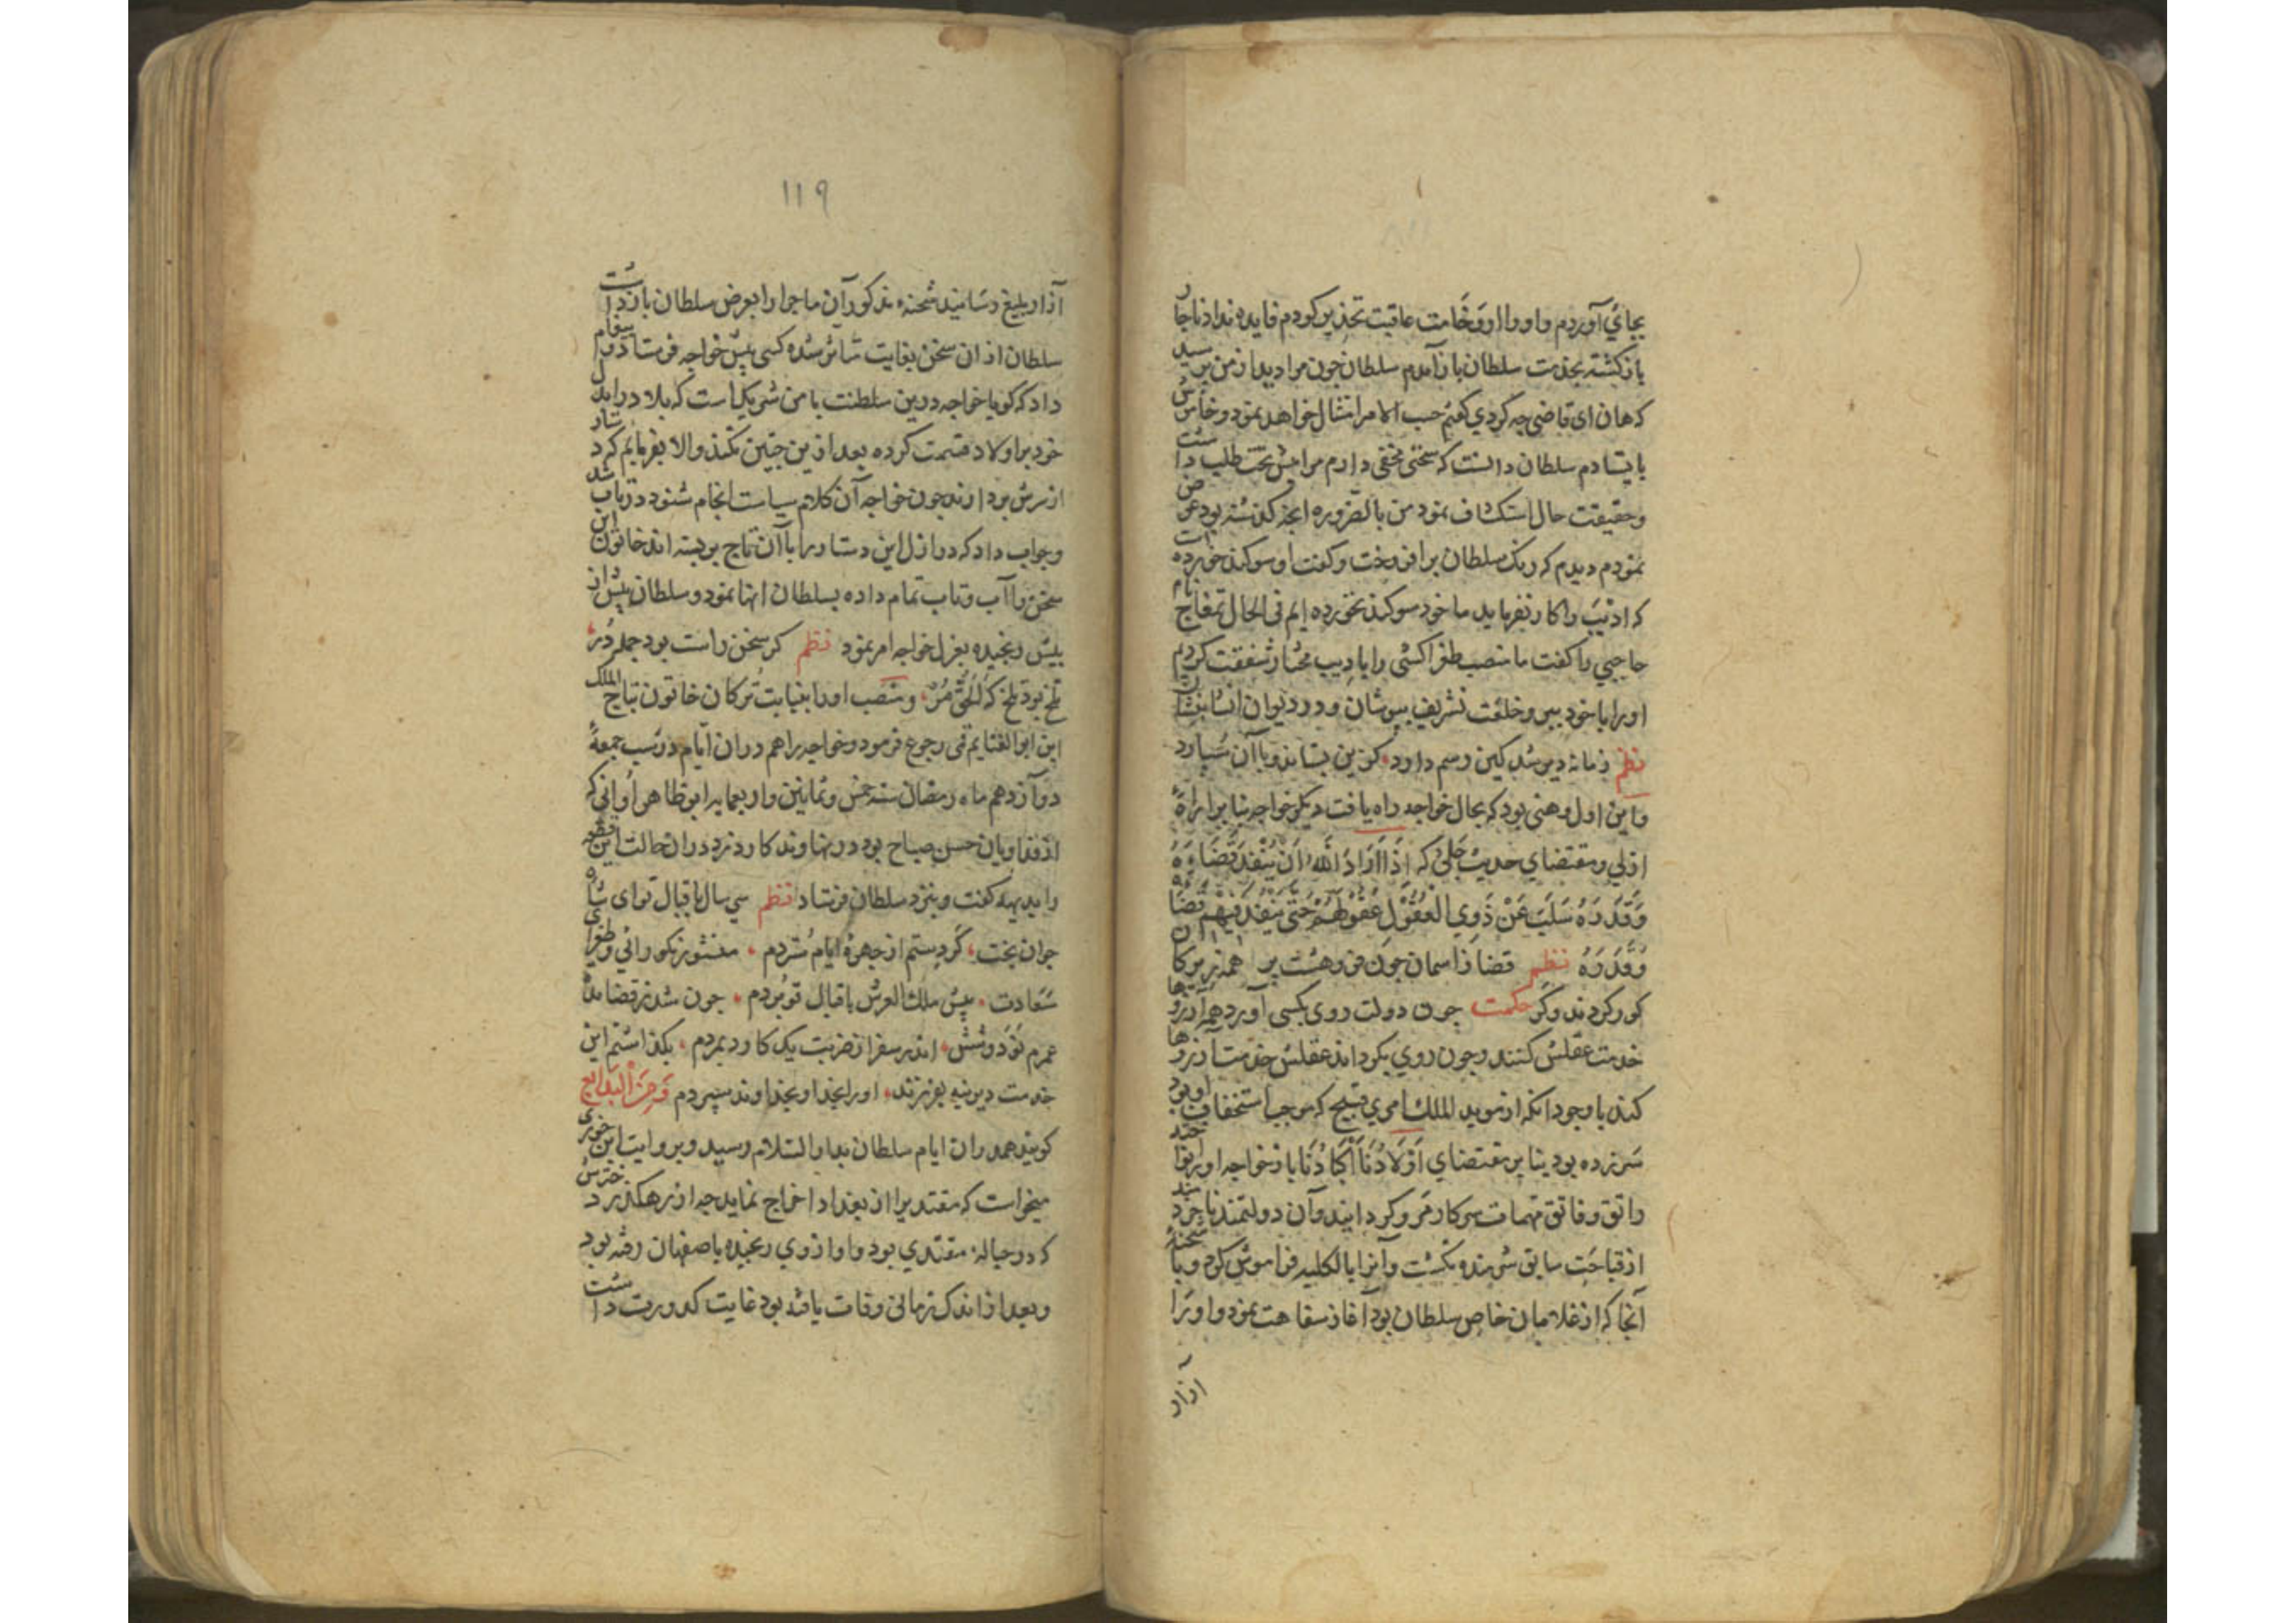 بجای آوردم و اورا از وخامت عاقبت تحذیر کردم فایده نداد ناچار
بازگشته بخدمت سلطان باز آمدم سلطان چون مرا دید از من پرسید
که هان ای قاضی چه کردی گفتم حسب الامر امتثال خواهد نمود و خاموش
بایستادم سلطان دانست که سخنی مخفی دارم مرا پیش تخت طلب داشت
و حقیقت حال استکشاف نمود من بالضروره آنچه گذشته بود عرض
نمودم دیدم که رنگ سلطان برافروخت و گفت او سوگند خورده است
که ادیب را کار نفرماید ما خود سوگند نخورده ایم فی الحال تمغاج نام
حاجبی را گفت ما منصب طغراکشی را بادیب مختار شفقت کردیم
اورا با خود ببر و خلعت تشریف بپوشان و در دیوان انشا بنشان
نظم زمانه دیر شد کین رسم دارد کزین بستاند و با آن سپارد
و این اول وهنی بود که بحال خواجه راه یافت دیگر خواجه بنا بر اراده
ازلی و مقتضای حدیث جلی که اِذَا اَرَادَ اللّهُ اَنْ یُنْفِذَ قَضَاءَهُ
وَ قَدَرَهُ سَلَبَ عَنْ ذَوِی الْعُقُولِ عُقُولَهُمْ حَتّی یَنْفُذَ فِیهِمْ قَضَاؤُهُ
وَ قَدَرُهُ نظم قضا ز آسمان چون فرو هشت پر همه زیرکان
کور کردند و کر حکمت چون دولت روی بکسی آورد همه آرزوها
خدمت عقلش کنند و چون روی بگرداند عقلش خدمت آرزوها
کند باوجود انکه از موید الملک امری قبیح که موجب استخفاف او بود
سر زده بود بنا بر مقتضای اَوْلَادُنَا اَکْبَادُنَا باز خواجه اورا بواجد
راتق و فاتق مهمات سرکار مرو گردانید و آن دولتمند ناخردمند
از قباحت سابق شرمنده نگشت و آنرا بالکلیه فراموش کرده و با شحنه
آنجا که از غلامان خاص سلطان بود آغاز سفاهت نمود و او را
آزار
١١٩
آزار بلیغ رسانید شحنه مذکور آن ماجرا را بعرض سلطان بازداشت
سلطان از ان سخن بغایت متاثر شده کسی پیش خواجه فرستاد و پیغام
داد که گویا خواجه درین سلطنت با من شریک است که بلاد در امل
خود بر اولاد قسمت کرده بعد ازین چنین نکند والا بفرمایم که دستار
از سرش بردارند چون خواجه آن کلام سیاست انجام شنود در تاب شد
و جواب داد که در ازل این دستار را با آن تاج بر بسته اند خاتون این
سخن را آب و تاب تمام داده بسلطان انها نمود و سلطان پیش از
پیش رنجیده بعزل خواجه امر نمود نظم گر سخن راست بود جمله در
تلخ بود تلخ که الحق مر و منصب اورا بنیابت ترکان خاتون بتاج الملک
ابن ابو الغنایم قمی رجوع فرمود و خواجه را هم در ان ایام در شب جمعه
دوازدهم ماه رمضان سنه خمس و ثمانین و اربعمایه ابو طاهر اوانی که
از فداویان حسن صباح بود در نهاوند کارد زد در ان حالت این قطعه
را بدیهه گفت و بنزد سلطان فرستاد نظم سی سال باقبال تو ای شاه
جوان بخت گرد ستم از چهره ایام ستردم منشور نکورائی و طغرای
سعادت پیش ملک العرش باقبال تو بردم چون شد ز قضا مدت
عمرم نود و شش اندر سفر از ضربت یک کارد بمردم بگذاشتم این
خدمت دیرینه بفرزند اورا بخدا و بخداوند سپردم وَ مِنَ الْبَدَایِع
گویند همدران ایام سلطان بدار السلام رسید و بروایت ابن جوزی
میخواست که مقتدی را از بغداد اخراج نماید چه از رهگذر دخترش
که در حباله مقتدی بود و او از وی رنجیده باصفهان رفته بود
و بعد از اندک زمانی وفات یافته بود غایت کدورت داشت